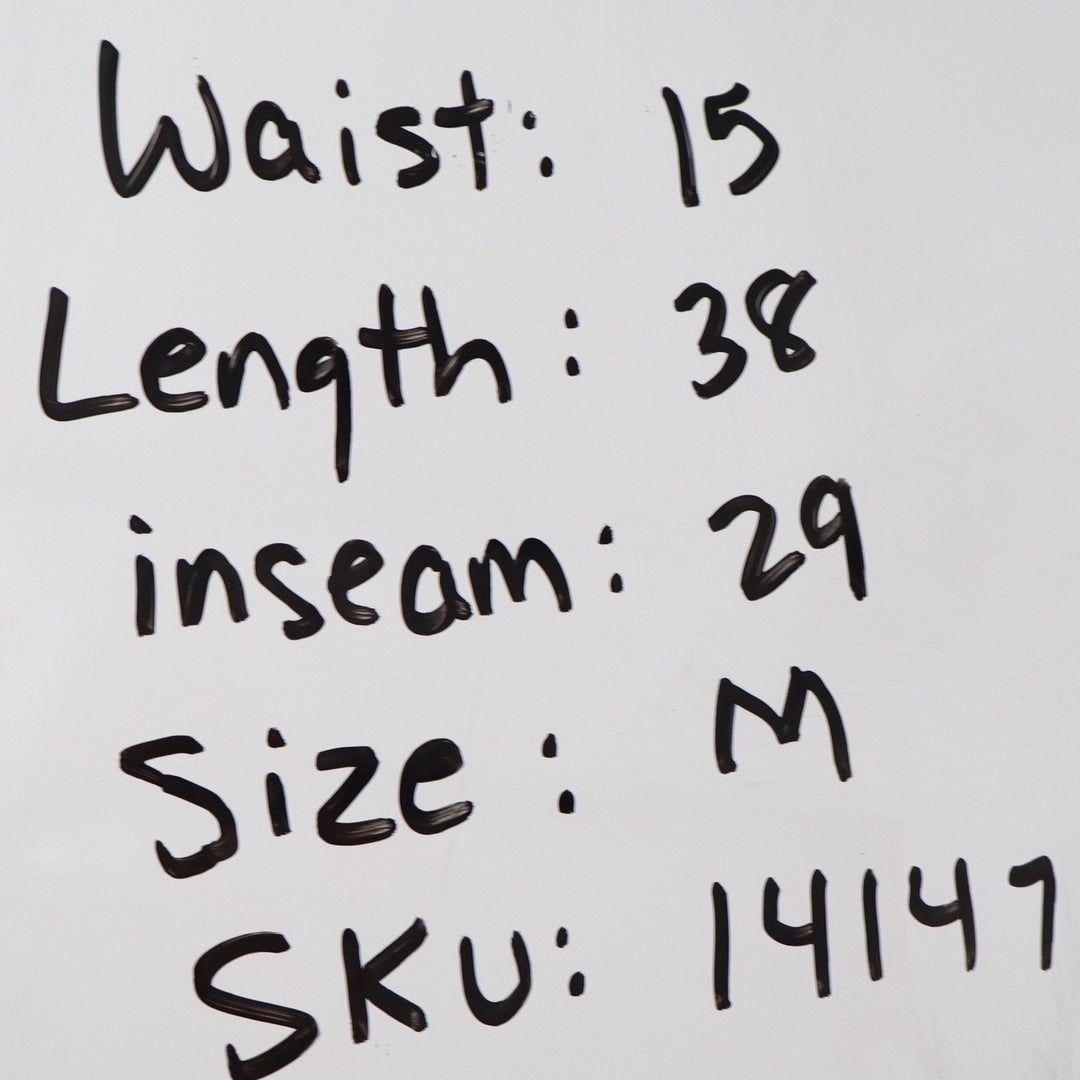 Waist: 15
Length: 38
inseam: 29
Size: M
SKU: 14147